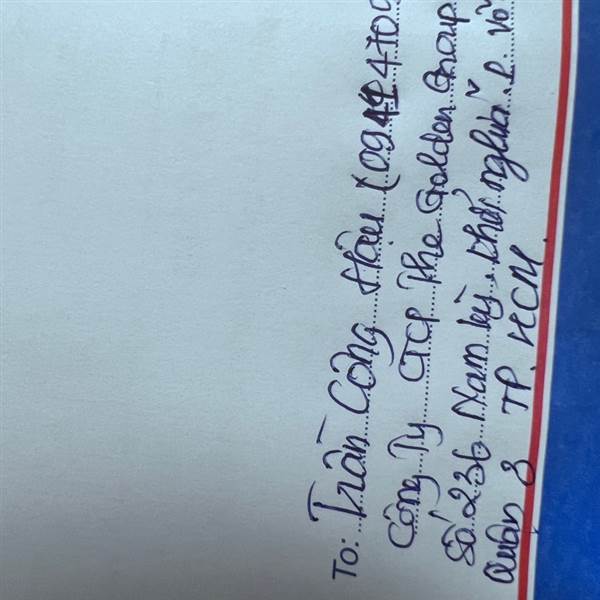 To: Trần Công Hậu (09
Công Ty CTCP The Golden Group
Số 236 Nam kỳ khởi nghĩa. P. Võ
Quận 3 TP. HCM.